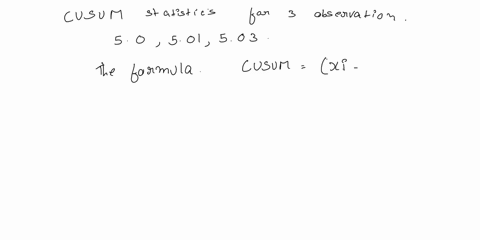 CUSUM statistics for 3 observation.
5.0, 5.01, 5.03.
The formula. CUSUM = (xi -